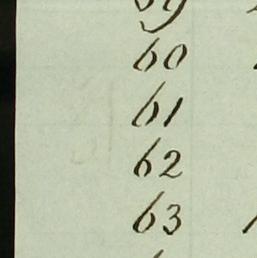 59
60
61
62
63